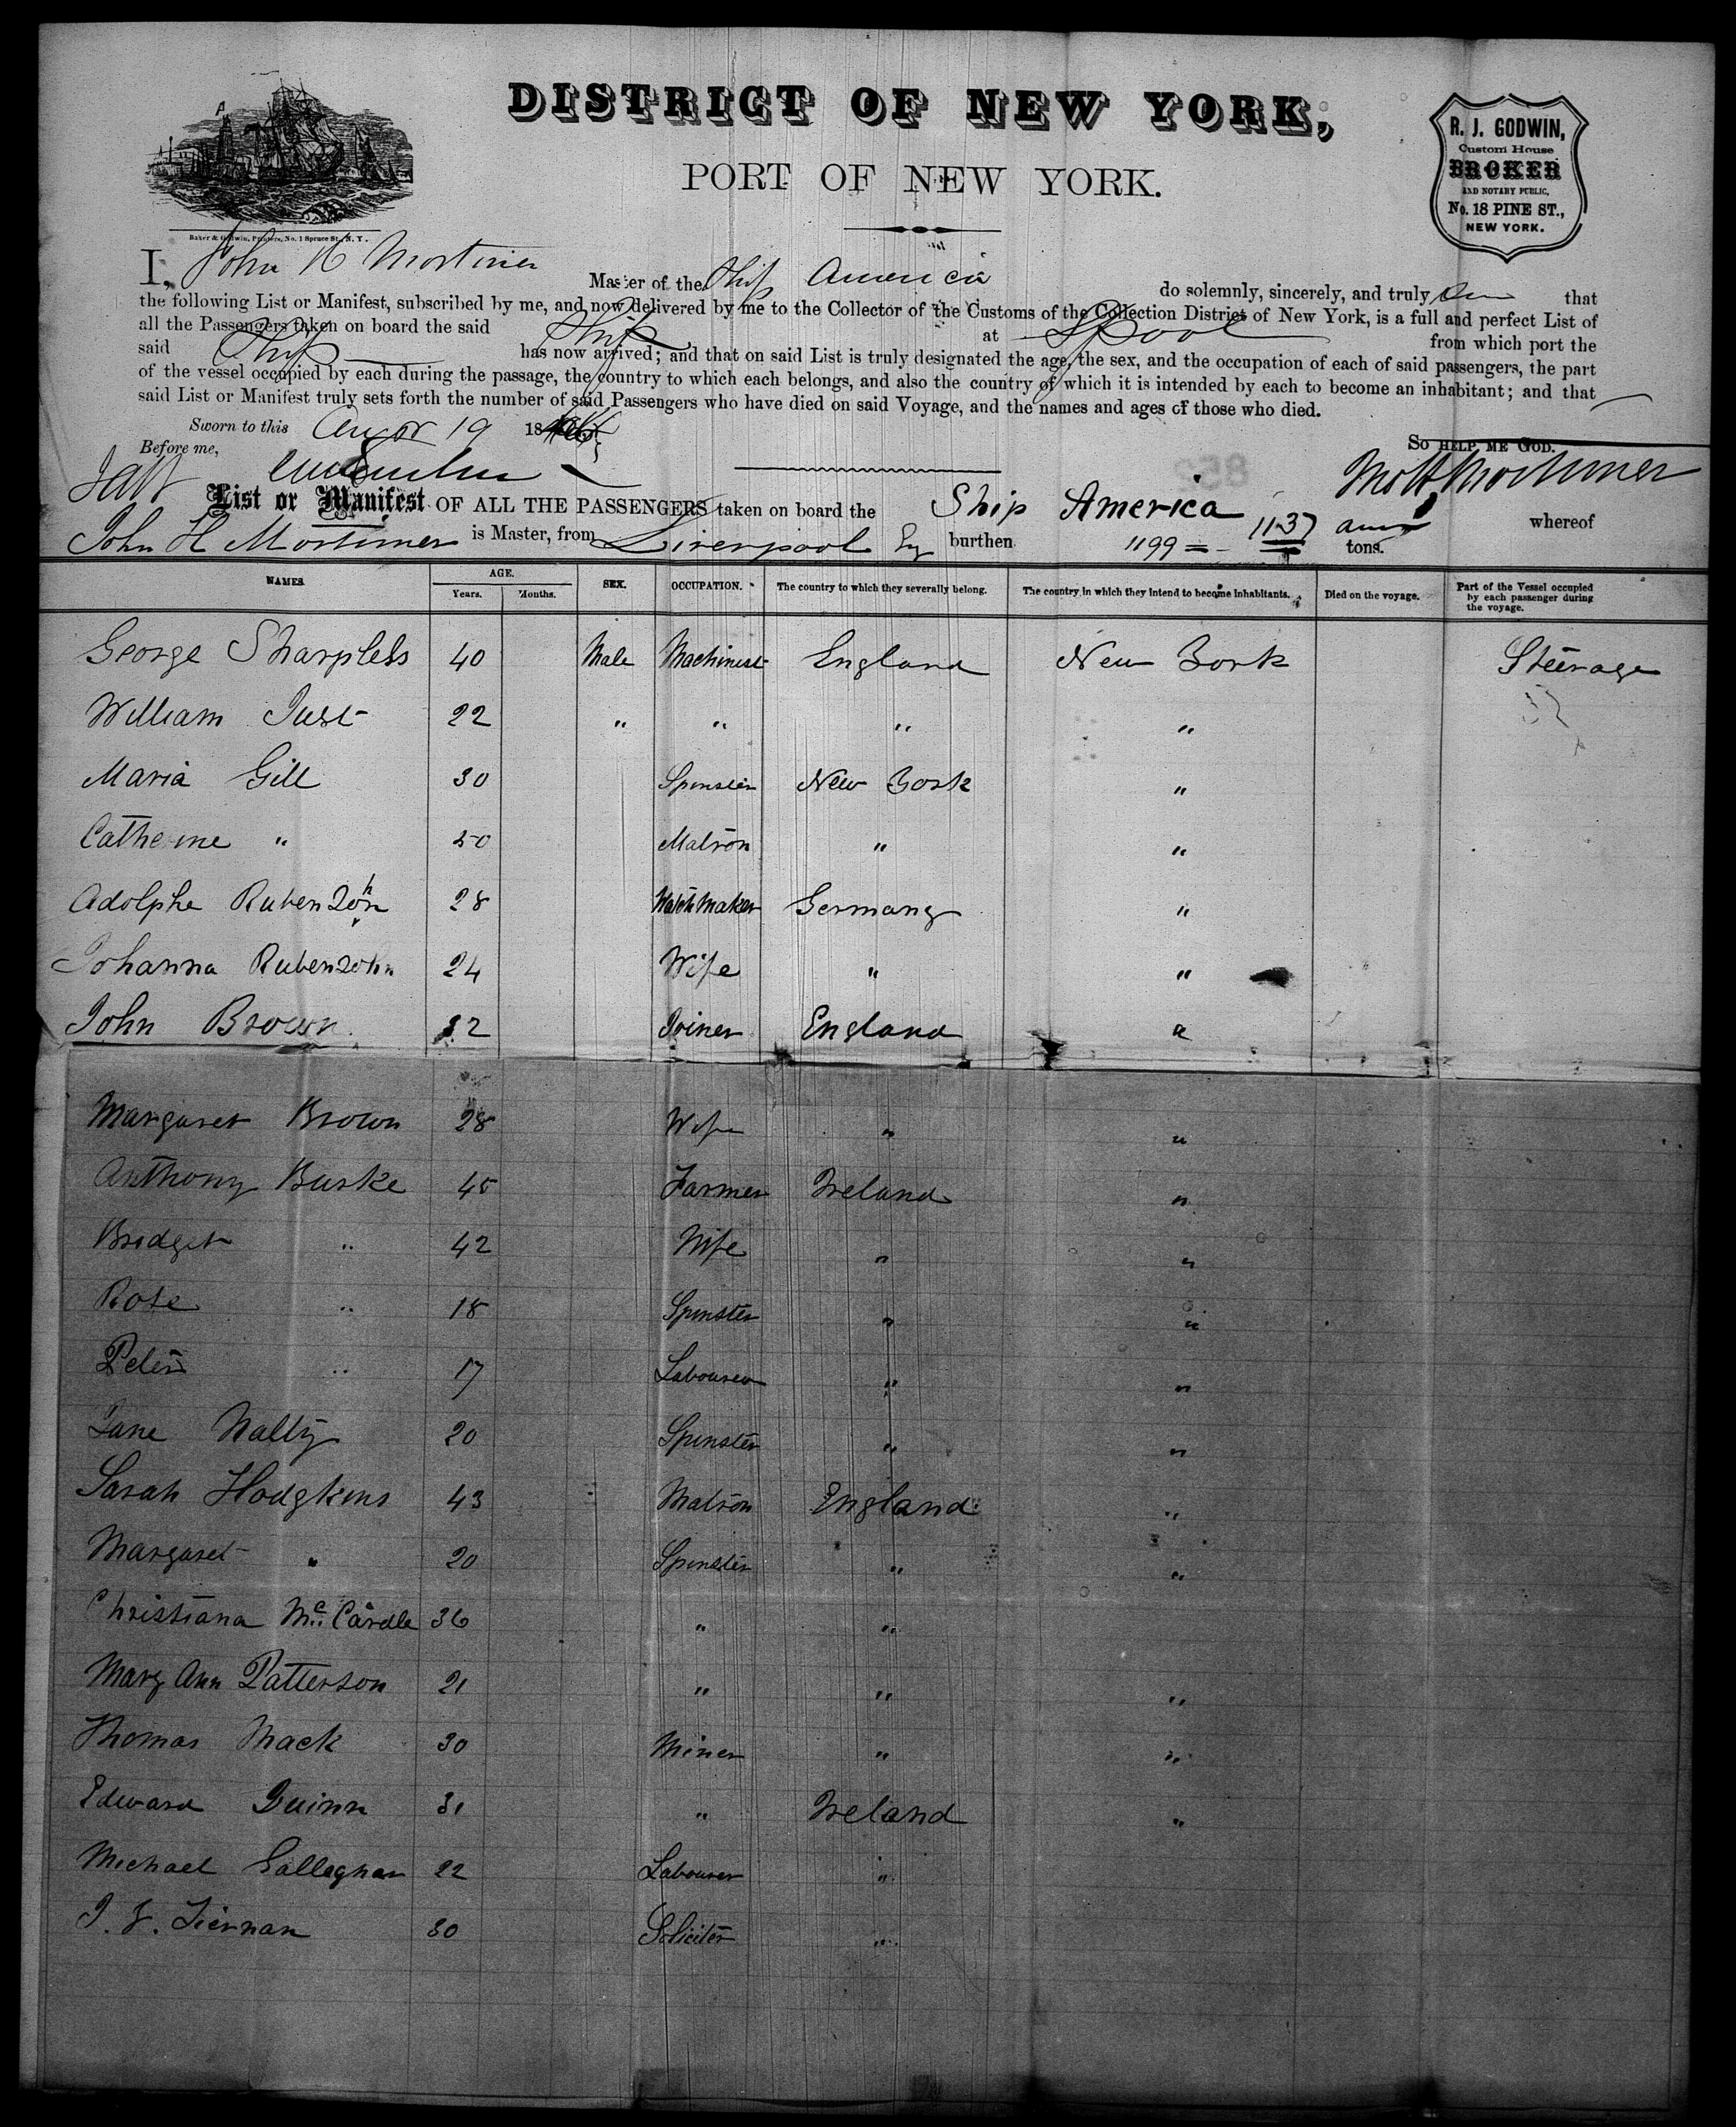 DISTRICT OF NEW YORK,
PORT OF NEW YORK.
R. J. GODWIN,
Custom House
BROKER
AND NOTARY PUBLIC,
No. 18 PINE ST.,
NEW YORK.
Baker & Godwin, Printers, No. 1 Spruce St., N. Y.
I, John H Mortimer Master of the Ship America do solemnly, sincerely, and truly that
the following List or Manifest, subscribed by me, and now delivered by me to the Collector of the Customs of the Collection District of New York, is a full and perfect List of
all the Passengers taken on board the said Ship at Lpool from which port the
said Ship has now arrived; and that on said List is truly designated the age, the sex, and the occupation of each of said passengers, the part
of the vessel occupied by each during the passage, the country to which each belongs, and also the country of which it is intended by each to become an inhabitant; and that
said List or Manifest truly sets forth the number of said Passengers who have died on said Voyage, and the names and ages of those who died.
Sworn to this 19 18
So HELP ME GOD.
Before me,
Mortimer
List or Manifest OF ALL THE PASSENGERS taken on board the Ship America 1137 whereof
John H Mortimer is Master, from Liverpool burthen 1199 tons.
NAMES. AGE. SEX. OCCUPATION. The country to which they severally belong. The country in which they intend to become inhabitants. Died on the voyage. Part of the Vessel occupied by each passenger during the voyage.
Years. Months.
George Sharpless 40 Male Machinist England New York Steerage
William Just 22 " " " "
Maria Gill 30 Spinster New York "
Catherine " 50 Matron " "
Adolphe Rubenzohn 28 Watchmaker Germany "
Johanna Rubenzohn 24 Wife " "
John Brown 32 Joiner England "
Margaret Brown 28 Wife " "
Anthony Burke 45 Farmer Ireland "
Bridget " 42 Wife " "
Rose " 18 Spinster " "
Peter " 17 Labourer " "
Jane Nalty 20 Spinster " "
Sarah Hodgkins 43 Matron England "
Margaret " 20 Spinster " "
Christiana McCardle 36 " "
Mary Ann Patterson 21 " " "
Thomas Mack 30 Miner " "
Edward Quinn 31 " Ireland "
Michael Gallaghan 22 Labourer "
J. F. Tiernan 30 Soliciter "